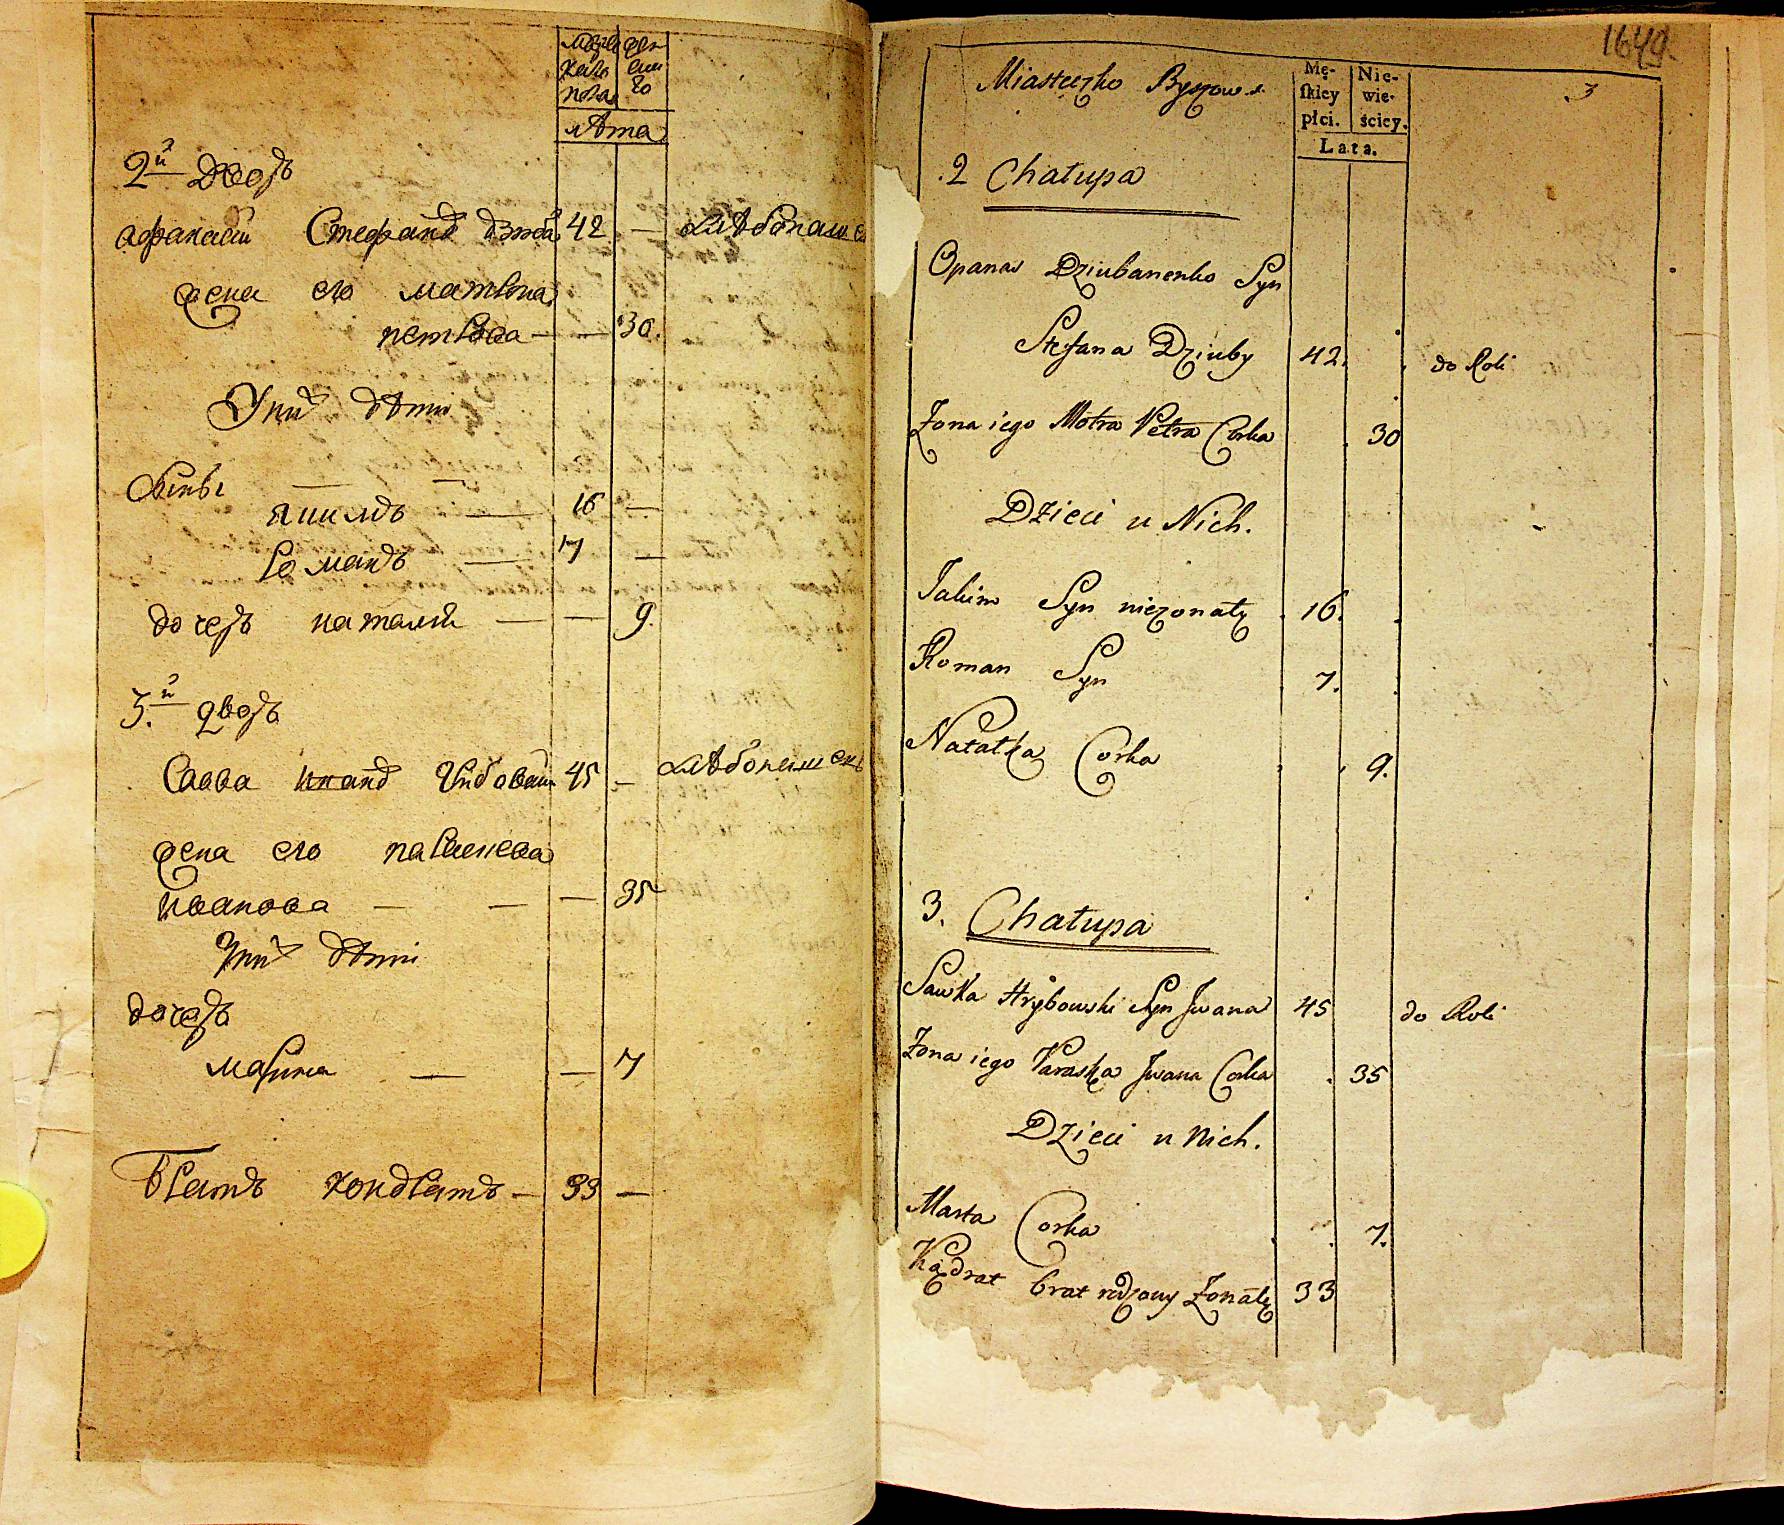 муже
ска
пола
жен
ска
го
лѣта
2й дворъ
афанасий Стефанд дзюба 42 — хлѣбопаше
жена его матрона
петрова — — 30.
У них дѣти
сыны — —
якимъ — 16 —
романъ — 7 —
дочеръ наталия — — 9.
3.й дворъ
Савва иванд грибовский 45 — хлѣбопашец
жена его парасцева
иванова — — — 35
У них дѣти
дочеръ
марина — — 7
братъ кондратъ — 33 —
1649.
3
Miasteczko Byszow
Mę-
skiey
płci.
Nie-
wie-
ściey.
Lata.
.2 Chałupa
Opanas Dziubanenko Syn
Stefana Dziuby 42. do Roli
Żona iego Motra Petra Corka 30
Dzieci u Nich.
Jakim Syn nieżonaty 16.
Roman Syn 7.
Natałka Corka 9.
3. Chałupa
Sawka Hrybowski Syn Jwana 45 do Roli
Żona iego Paraska Jwana Corka 35
Dzieci u Nich.
Marta Corka 7.
Kądrat brat rodzony Żonaty 33